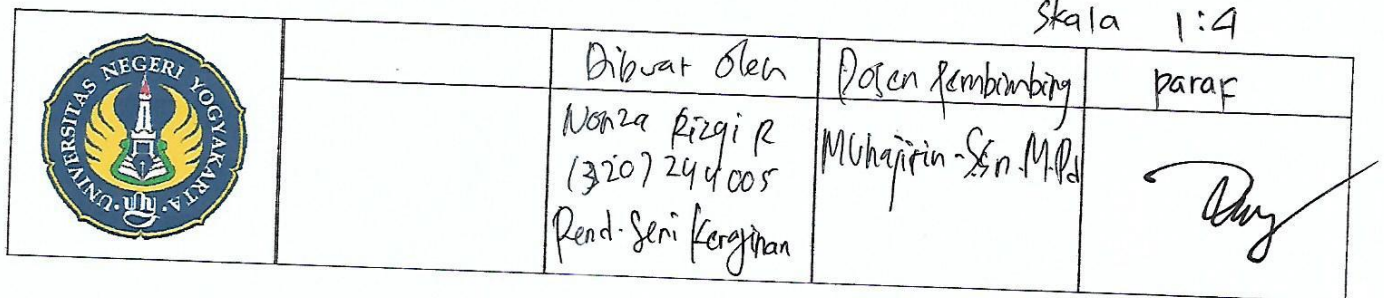 Skala 1:4
UNIVERSITAS NEGERI YOGYAKARTA
Dibuat Oleh
Dosen Pembimbing
paraf
Nonza Rizqi R
13207244005
Pend. Seni Kerajinan
Muhajirin - S.Sn. M.Pd